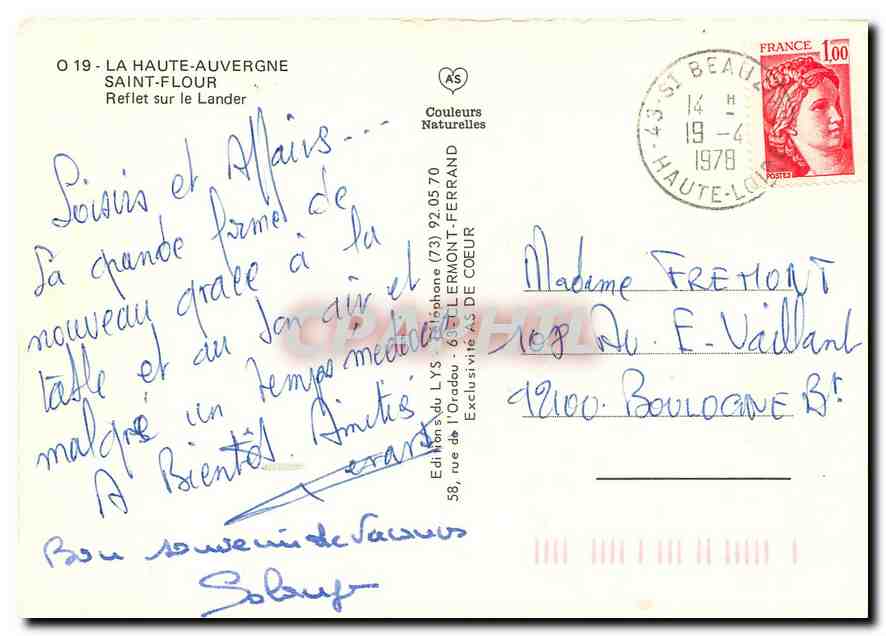 O 19 - LA HAUTE-AUVERGNE
SAINT-FLOUR
Reflet sur le Lander
AS
Couleurs
Naturelles
Loisirs et Affairs...
La grande firme de
nouveau grace à la
table et au bon air et
malgré un temps médiocre
A Bientôt. Amitiés
Bon souvenir de vacances
Solange
Editions du LYS - Téléphone (73) 92.05 70
58, rue de l'Oradou - 63 CLERMONT-FERRAND
Exclusivité AS DE COEUR
43-ST BEAUZ
14 H
19-4
1978
HAUTE-LOIRE
FRANCE 1,00
POSTES
Madame FREMONT
108 Av. E-Vaillant
92100. BOULOGNE Bt
CPARHTL